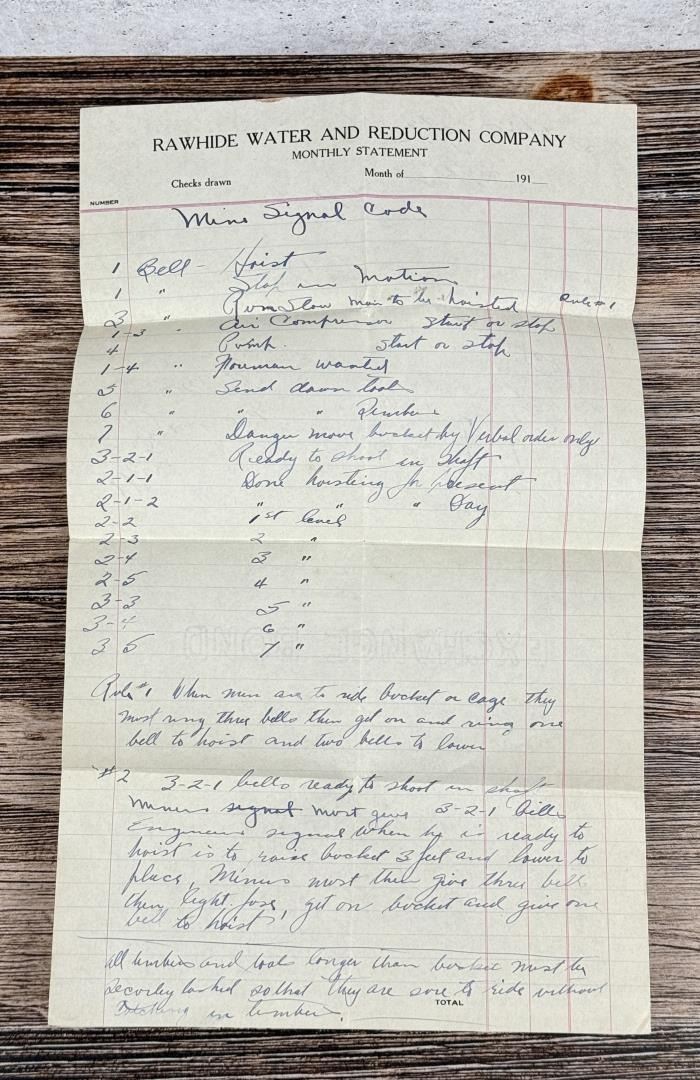 RAWHIDE WATER AND REDUCTION COMPANY
MONTHLY STATEMENT
Checks drawn Month of 191
NUMBER
Mine Signal Code
1 Bell - Hoist
1 " Stop in Motion
3 " Run Slow men to be hoisted Rule #1
1-3 " Air Compressor Start or stop
4 Pump. Start or stop
1-4 " Foreman wanted
5 " Send down tools
6 " " " Timbers
7 " Danger move bucket by Verbal order only
3-2-1 Ready to shoot in shaft
2-1-1 Done hoisting for present
2-1-2 " " " Day
2-2 1st level
2-3 2 "
2-4 3 "
2-5 4 "
3-3 5 "
3-4 6 "
3 5 7 "
Rule #1 When men are to ride bucket or cage they
most ring three bells then get on and ring one
bell to hoist and two bells to lower
"#2 3-2-1 bells ready to shoot in shaft
Miners signal most give 3-2-1 bells
Engineers signal when he is ready to
hoist is to raise bucket 3 feet and lower to
place, Miners most then give three bells
then light fuse, get on bucket and give one
bell to hoist
all timbers and tools longer than bucket most be
lashed so that they are sure to ride without
in timbers.
TOTAL